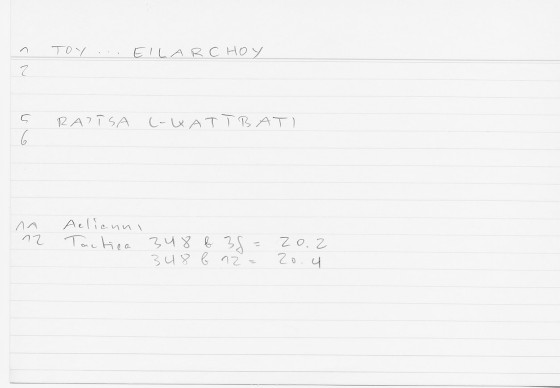 1 TOY ... EILARCHOY
2
5 RAJISA L-WATTBATI
6
11 Aelianus
12 Tactica 348 b 35 = 20.2
348 b 12 = 20.4